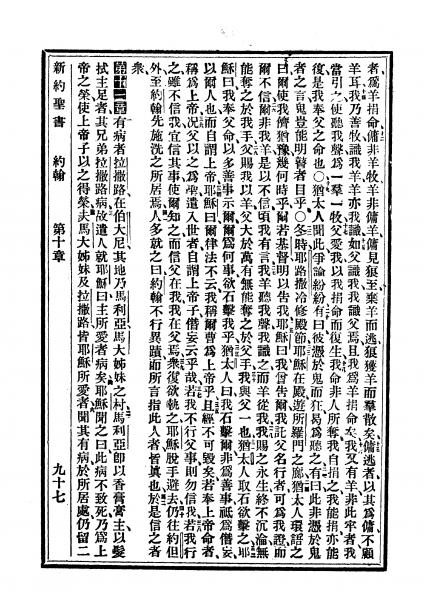 者爲羊捐命傭非羊牧羊非傭羊傭見狼至棄羊而逃狼獲羊而羣散矣傭逃者以其爲傭不顧
羊耳我乃善牧識我羊羊亦我識如父識我我識父焉且我爲羊捐命又有羊非此牢者我
當引之使聽我聲爲一羣一牧父愛我以我捐命而復生我命非人所奪我自捐之我能捐亦能
復是我奉父之命也〇猶太人聞此爭論紛紛有曰彼憑於鬼而狂曷爲聽之有曰此非憑於鬼
者之言鬼豈能明瞽者目乎〇冬時耶路撒冷修殿節耶穌在殿遊所羅門之廊猶太人環語之
曰爾使我儕猶豫幾何時乎爾若基督明以告我耶穌曰我曾告爾我託父名行者可爲我證而
爾不信爾非我羊是以不信頃我有言我羊聽我聲我識之而羊從我我賜之永生終不沉淪無
能奪之於我手父賜我以羊父大於萬有無能奪之於父手我與父一也猶太人取石欲擊之耶
穌曰我奉父命以多善事示爾爾爲何事欲石擊我乎猶太人曰我石擊爾非爲善事祗爲僭妄
以爾人也而自謂上帝耶穌曰爾律法不云我稱爾曹爲上帝乎且經不可毀矣若奉上帝命者
稱爲上帝況父以之爲聖遣入世者自謂上帝子僭妄云乎哉若我不行父事則勿信我若我行
之雖不信我宜信其事使爾知之而信父在我我在父焉衆復欲執之耶穌脫手避去仍往約但
外至約翰先施洗之所居焉人多就之曰約翰不行異蹟而所言指此人者皆眞也於是信之者
衆
第十一章 有病者拉撒路在伯大尼其地乃馬利亞馬大姊妹之村馬利亞卽以香膏膏主以髮
拭主足者其兄弟拉撒路病故遣人就耶穌曰主所愛者病矣耶穌聞之曰此病不致死乃爲上
帝之榮使上帝子以之得榮夫馬大姊妹及拉撒路皆耶穌所愛者聞其有病於所居處仍留二
新約聖書 約翰 第十章 九十七